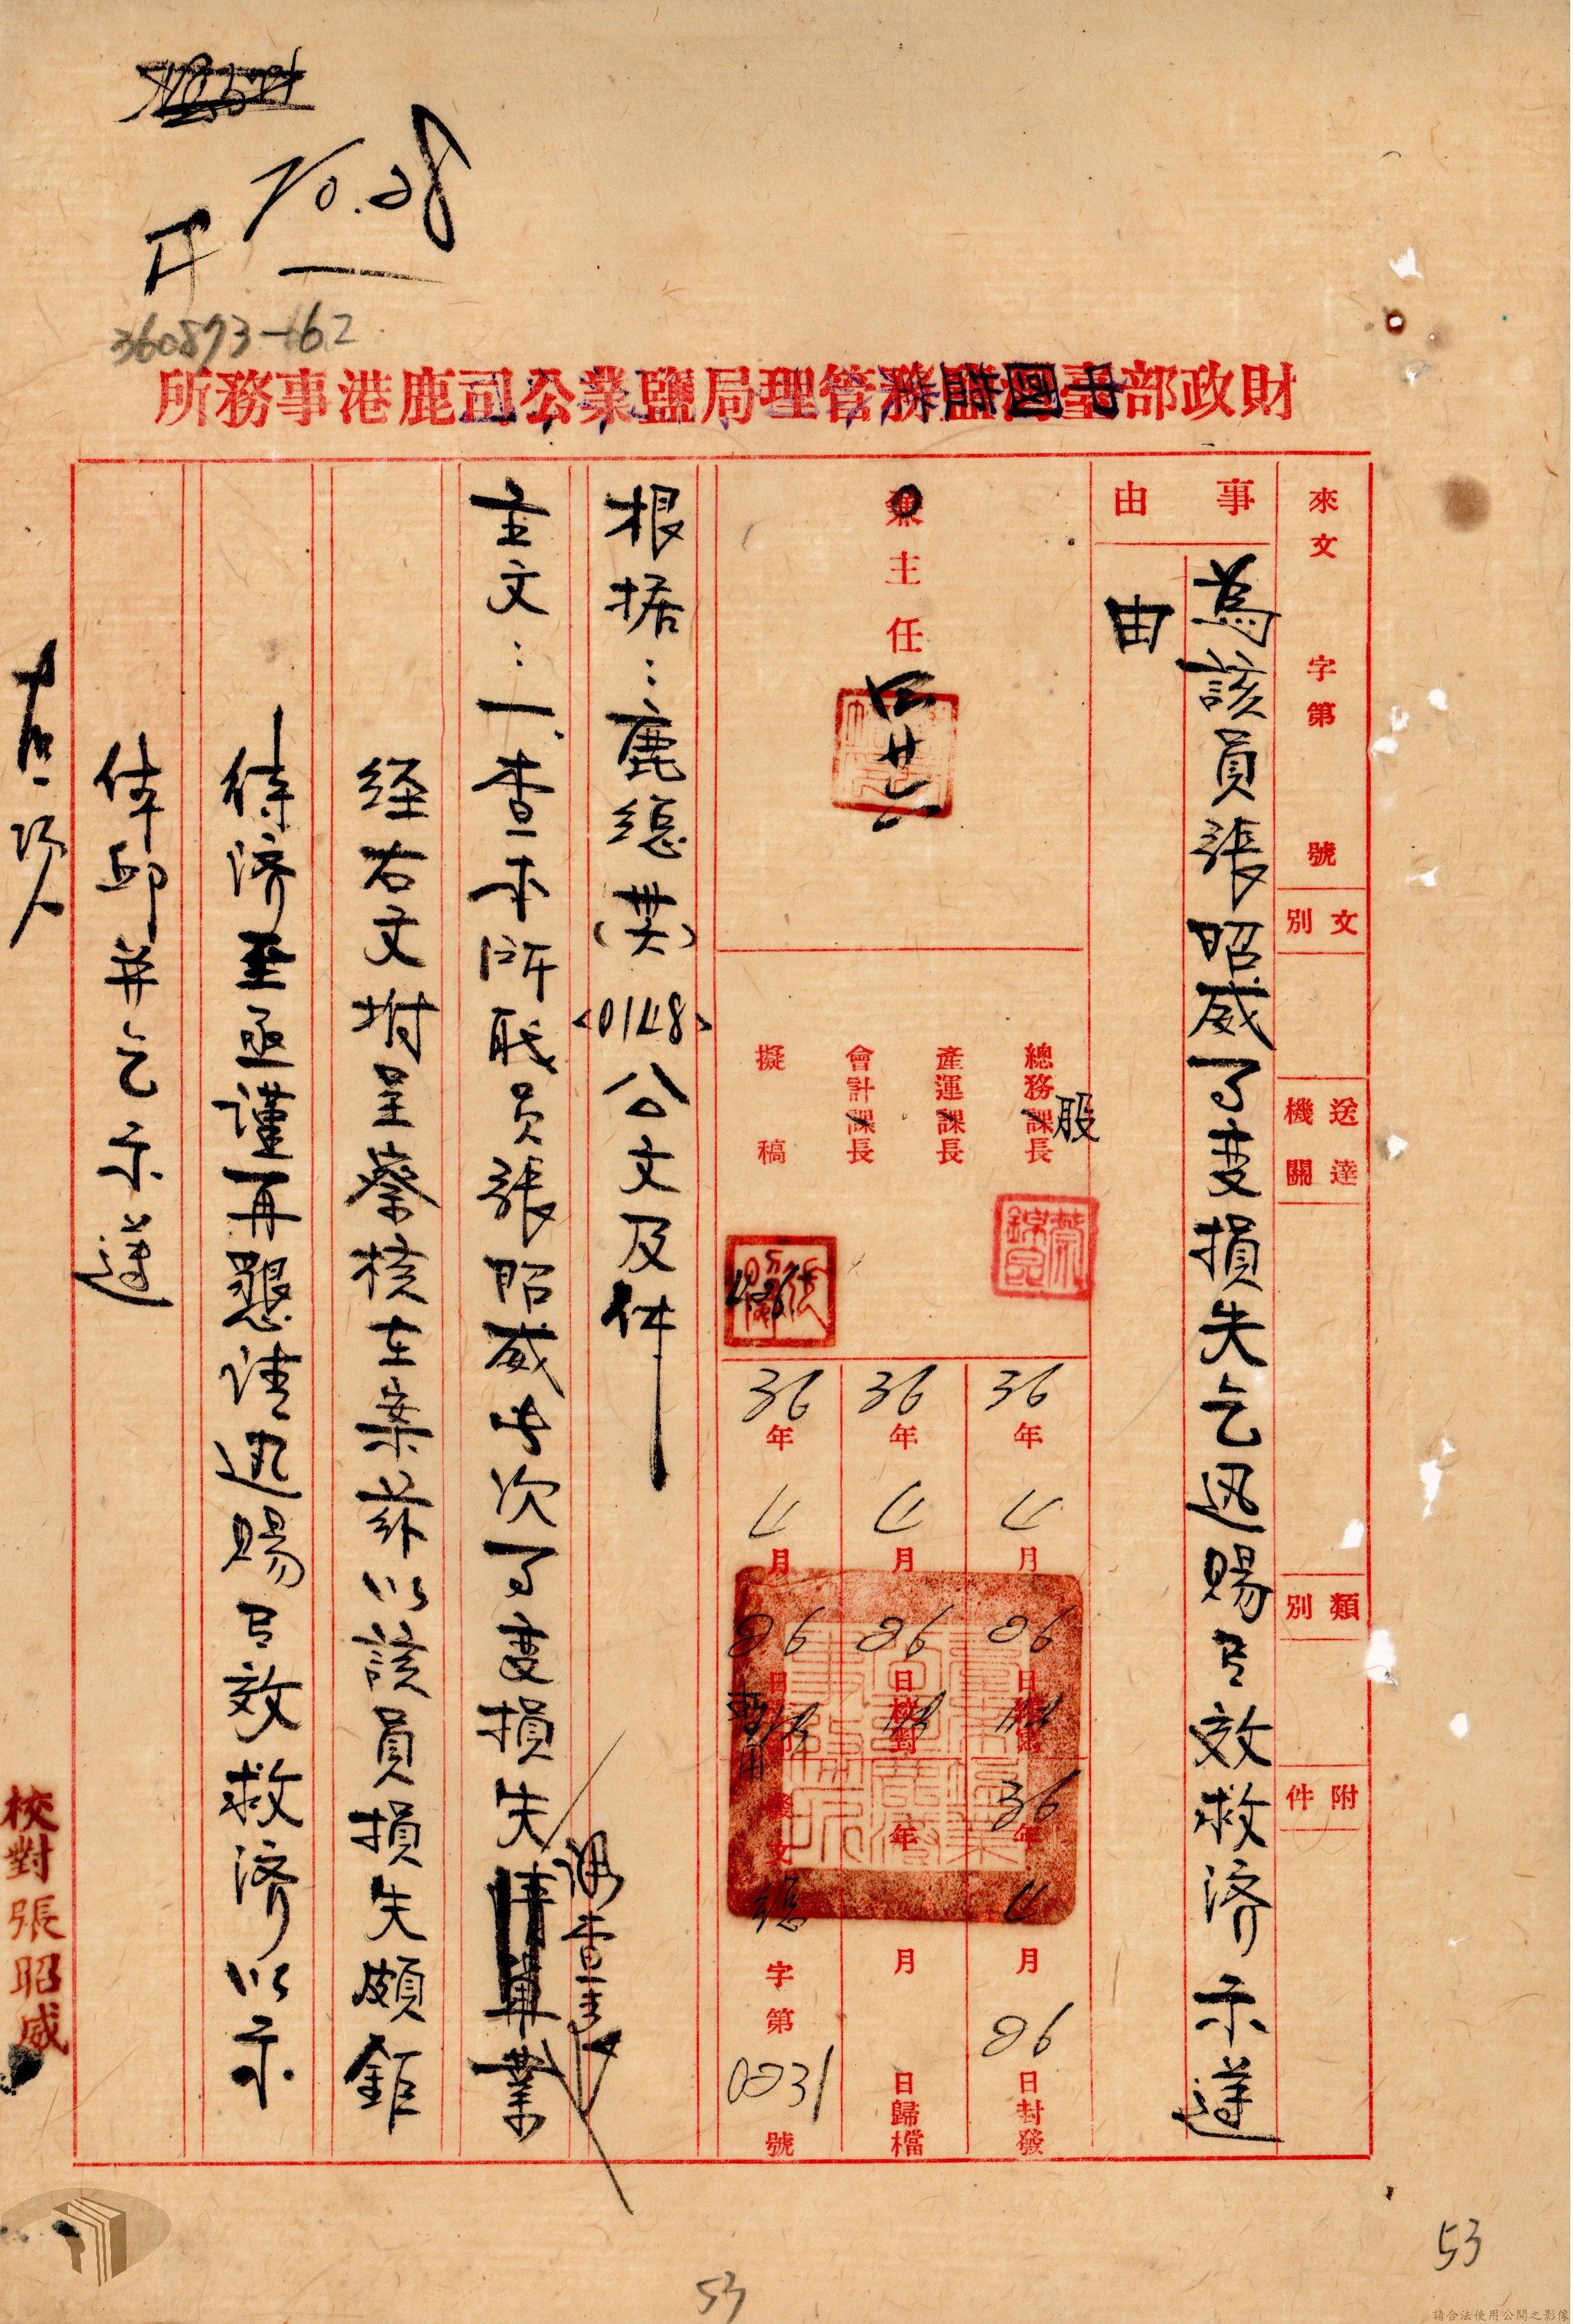 10.28
360873-162
財政部臺灣鹽務管理局鹽業公司鹿港事務所
中國
來文 字第 號
文別
送達機關
類別
附件
事由
為該員張昭威了變損失乞迅賜有效救济示遵
由
兼主任
四廿六
總務課長
股
產運課長
會計課長
擬稿
36年4月26日
36年4月26日校對
36年4月26日
36年4月26日封發
年 月 日歸檔
發文總字第0231號
根据：鹿總(卅六)<0148>公文及件
主文：一、查本所职员張昭威此次了變損失業
經右文坿呈察核在案茲以該員損失頗鉅
待济至亟謹再懇請迅賜有效救济以示
体卹并乞示遵
校對張昭威
53
53
請合法使用公開之影像